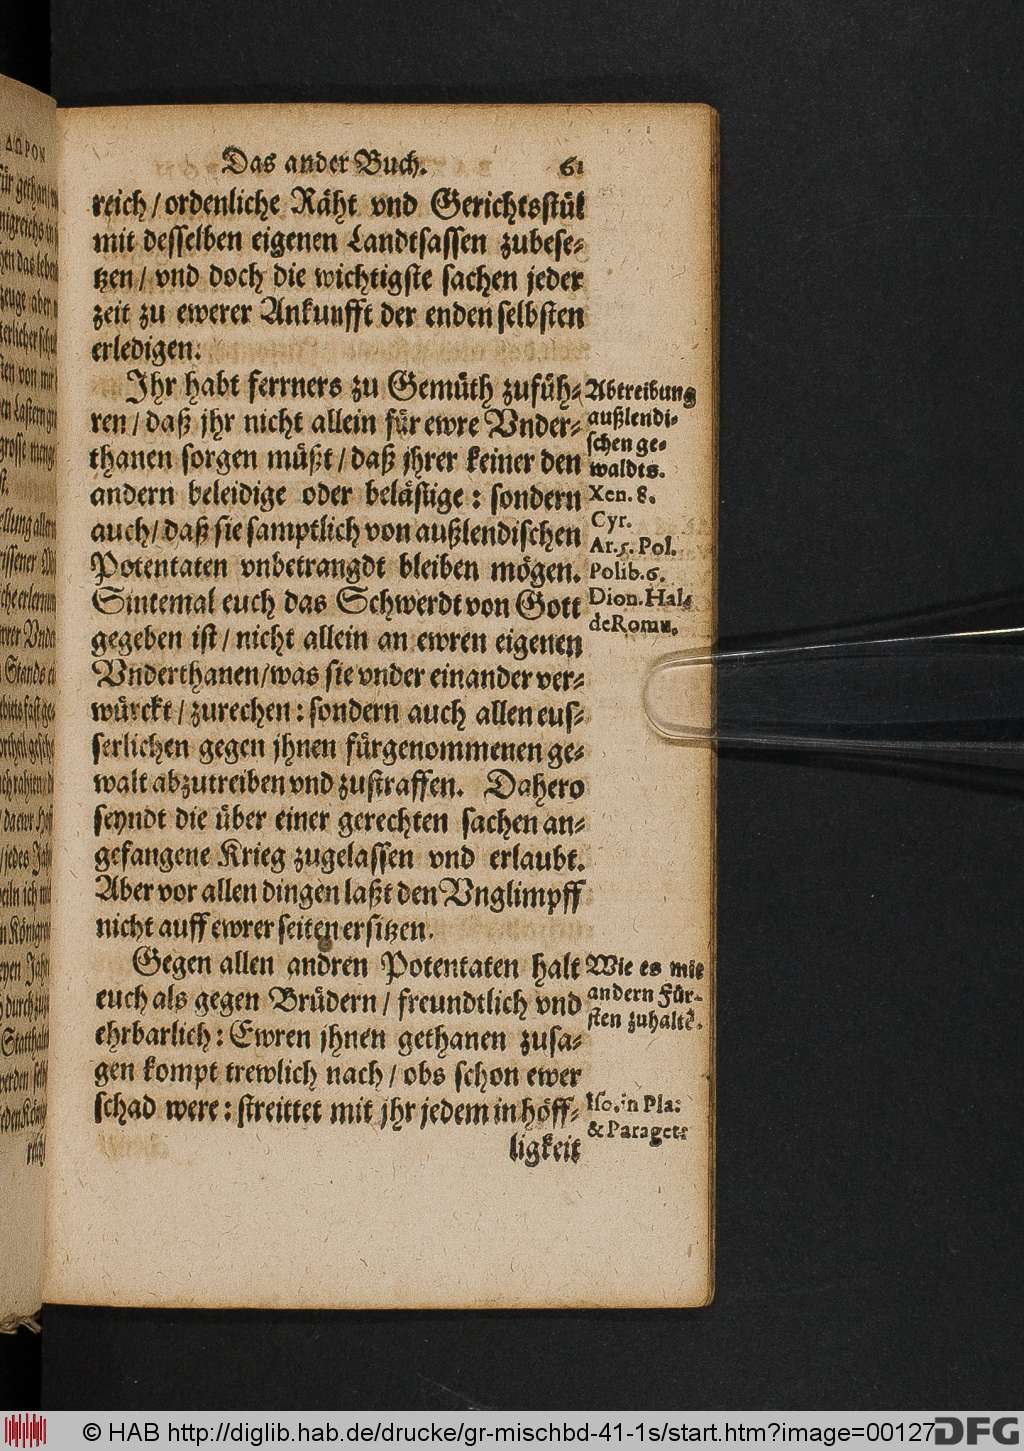 Das ander Buch. 61
reich / ordenliche Räht vnd Gerichtsstül
mit desselben eigenen Landtsassen zubese-
tzen / vnd doch die wichtigste sachen jeder
zeit zu ewerer Ankunfft der enden selbsten
erledigen.
Ihr habt ferrners zu Gemüth zufüh-
ren / daß jhr nicht allein für ewre Vnder-
thanen sorgen müßt / daß jhrer keiner den
andern beleidige oder belästige : sondern
auch / daß sie samptlich von außlendischen
Potentaten vnbetrangdt bleiben mögen.
Sintemal euch das Schwerdt von Gott
gegeben ist / nicht allein an ewren eigenen
Vnderthanen / was sie vnder einander ver-
würckt / zurechen : sondern auch allen eus-
serlichen gegen jhnen fürgenommenen ge-
walt abzutreiben vnd zustraffen. Dahero
seyndt die über einer gerechten sachen an-
gefangene Krieg zugelassen vnd erlaubt.
Aber vor allen dingen laßt den Vnglimpff
nicht auff ewrer seiten ersitzen.
Gegen allen andren Potentaten halt
euch als gegen Brüdern / freundtlich vnd
ehrbarlich : Ewren jhnen gethanen zusa-
gen kompt trewlich nach / obs schon ewer
schad were : streittet mit jhr jedem in höff-
ligkeit
Abtreibung
außlendi-
schen ge-
waldts.
Xen. 8.
Cyr.
Ar. 5. Pol.
Polib. 6.
Dion. Hal.
de Romu.
Wie es mit
andern Für-
sten zuhaltē.
Iso. in Pla:
& Parag
ΔΩΡΟΝ
© HAB http://diglib.hab.de/drucke/gr-mischbd-41-1s/start.htm?image=00127
DFG